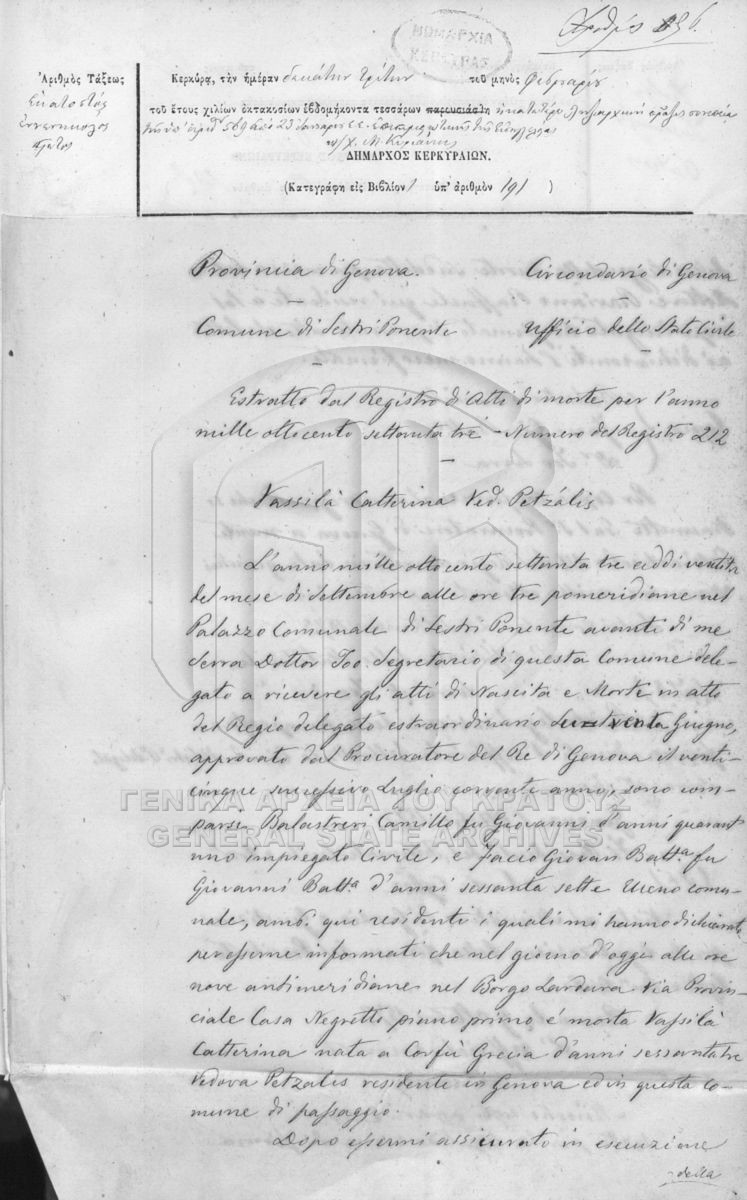 Ἀριθμὸς 256
ΝΟΜΑΡΧΙΑ
ΚΕΡΚΥΡΑΣ
Ἀριθμὸς Τάξεως
Ἑκατοστὸς
ἐννενηκοστὸς
πρῶτος
Κερκύρᾳ, τὴν ἡμέραν δεκάτην τρίτην τοῦ μηνὸς φεβρουαρίου
τοῦ ἔτους χιλίων ὀκτακοσίων ἑβδομήκοντα τεσσάρων παρευσιάσθη ληξιαρχικὴ πρᾶξις συνεπείᾳ
τῆς ὑπ' ἀριθ 569 καὶ 23 Ἰανουαρίου ε.ε. τῆς Εἰσαγγελείας
ΔΗΜΑΡΧΟΣ ΚΕΡΚΥΡΑΙΩΝ.
(Κατεγράφη εἰς Βιβλίον 1 ὑπ' ἀριθμὸν 191 )
Provincia di Genova. Circondario di Genova
Comune di Sestri Ponente Ufficio dello Stato Civile
Estratto dal Registro di Atti di morte per l'anno
mille ottocento settanta tre - Numero del Registro 212
Vassilà Catterina Ved. Petzàlis
L'anno mille ottocento settanta tre addi ventitre
del mese di Settembre alle ore tre pomeridiane nel
Palazzo Comunale di Sestri Ponente avanti di me
Serra Dottor Gio. Segretario di questa Comune dele-
gato a ricevere gli atti di Nascita e Morte in atto
del Regio delegato estraordinario venta Giugno,
approvato dal Procuratore del Re di Genova il venti-
cinque successivo Luglio corrente anno, sono com-
parsi Balastreri Camillo fu Giovanni d'anni quarant
uno impiegato Civile, e Facio Giovan Batta fu
Giovanni Batta d'anni sessanta sette Usciere comu-
nale, ambi qui residenti i quali mi hanno dichiarato
per esserne informati che nel giorno d'oggi alle ore
nove antimeridiane nel Borgo Lardara Via Provin-
ciale Casa Negrotto piano primo é morta Vassilà
Catterina nata a Corfù Grecia d'anni sessanta tre
Vedova Petzalis residente in Genova ed in questa Co-
mune di passaggio.
Dopo essermi assicurato in esecuzione
della
ΓΕΝΙΚΑ ΑΡΧΕΙΑ ΤΟΥ ΚΡΑΤΟΥΣ
GENERAL STATE ARCHIVES